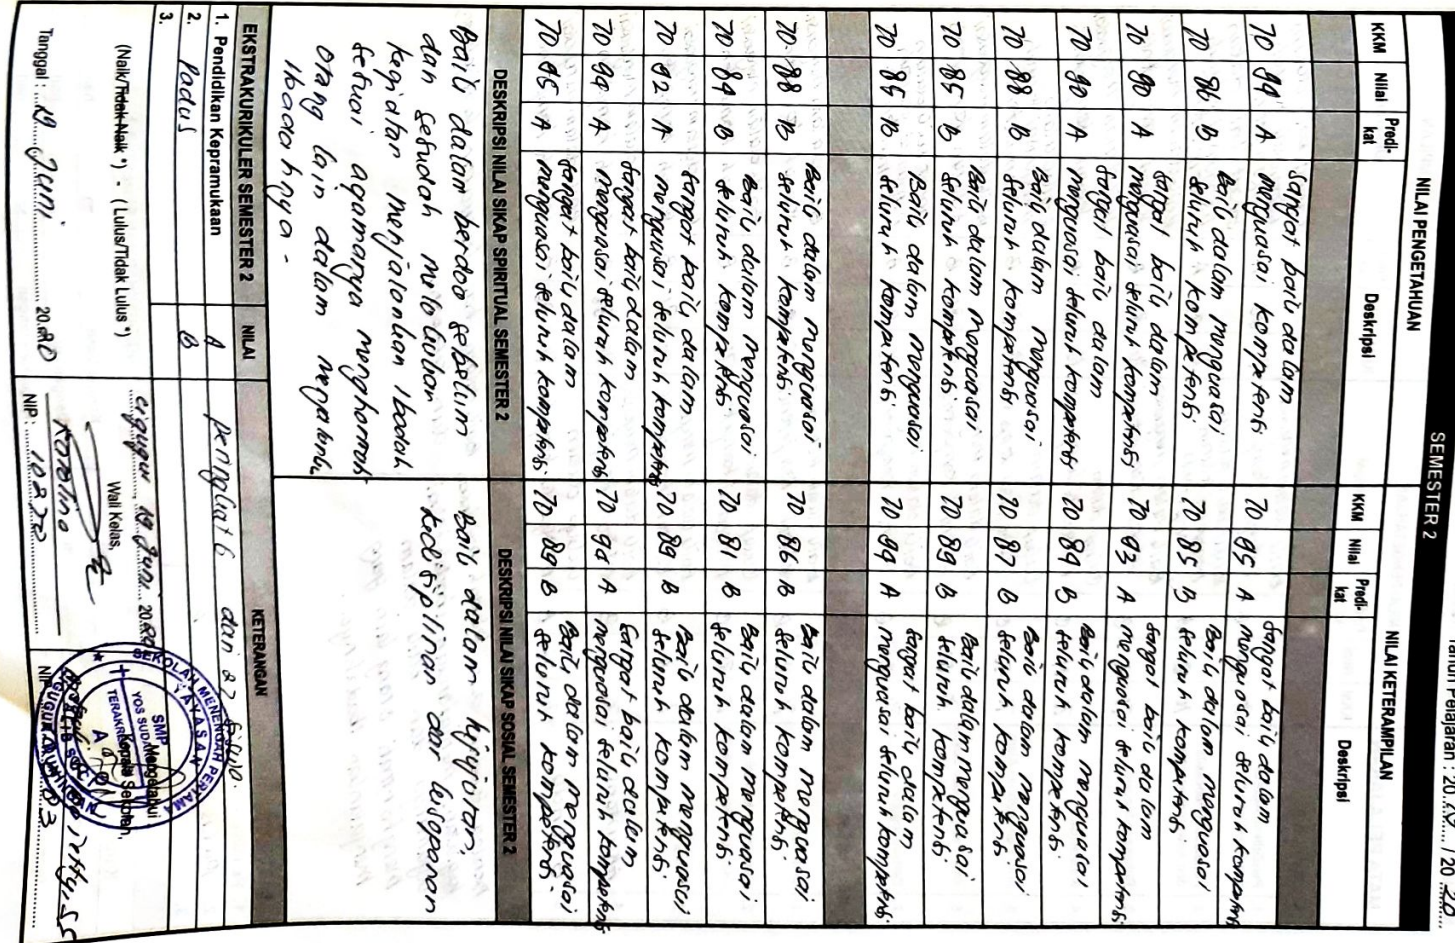 SEMESTER 2
NILAI PENGETAHUAN NILAI KETERAMPILAN
KKM Nilai Predi-kat Deskripsi KKM Nilai Predi-kat Deskripsi
70 94 A Sangat baik dalam menguasai kompetensi 70 95 A Sangat baik dalam menguasai seluruh kompetensi
70 86 B Baik dalam menguasai seluruh kompetensi 70 85 B Baik dalam menguasai seluruh kompetensi
70 90 A Sangat baik dalam menguasai seluruh kompetensi 70 93 A Sangat baik dalam menguasai seluruh kompetensi
70 90 A Sangat baik dalam menguasai seluruh kompetensi 70 89 B Baik dalam menguasai seluruh kompetensi
70 88 B Baik dalam menguasai seluruh kompetensi 70 87 B Baik dalam menguasai seluruh kompetensi
70 85 B Baik dalam menguasai seluruh kompetensi 70 89 B Baik dalam menguasai seluruh kompetensi
70 85 B Baik dalam menguasai seluruh kompetensi 70 94 A Sangat baik dalam menguasai seluruh kompetensi
70 88 B Baik dalam menguasai seluruh kompetensi 70 86 B Baik dalam menguasai seluruh kompetensi
70 89 B Baik dalam menguasai seluruh kompetensi 70 81 B Baik dalam menguasai seluruh kompetensi
70 92 A Sangat baik dalam menguasai seluruh kompetensi 70 89 B Baik dalam menguasai seluruh kompetensi
70 94 A Sangat baik dalam menguasai seluruh kompetensi 70 94 A Sangat baik dalam menguasai seluruh kompetensi
70 95 A Sangat baik dalam menguasai seluruh kompetensi 70 89 B Baik dalam menguasai seluruh kompetensi
DESKRIPSI NILAI SIKAP SPIRITUAL SEMESTER 2 DESKRIPSI NILAI SIKAP SOSIAL SEMESTER 2
Baik dalam berdoa sebelum
dan sesudah melakukan
kegiatan menjalankan ibadah
sesuai agamanya menghormati
orang lain dalam menjalankan
ibadahnya.
Baik dalam kejujuran,
kedisiplinan dan kesopanan
EKSTRAKURIKULER SEMESTER 2 NILAI KETERANGAN
1. Pendidikan Kepramukaan A Peringkat 6 dari 27 siswa.
2. Padus B
3.
(Naik/Tidak Naik *) - (Lulus/Tidak Lulus *)
Tanggal : 19 Juni 2020
19 Juni 20
Wali Kelas,
NIP.
Mengetahui
Kepala Sekolah,
NIP.
SEKOLAH MENENGAH PERTAMA
YAYASAN
SMP
YOS SUDARSO
TERAKREDITASI
A